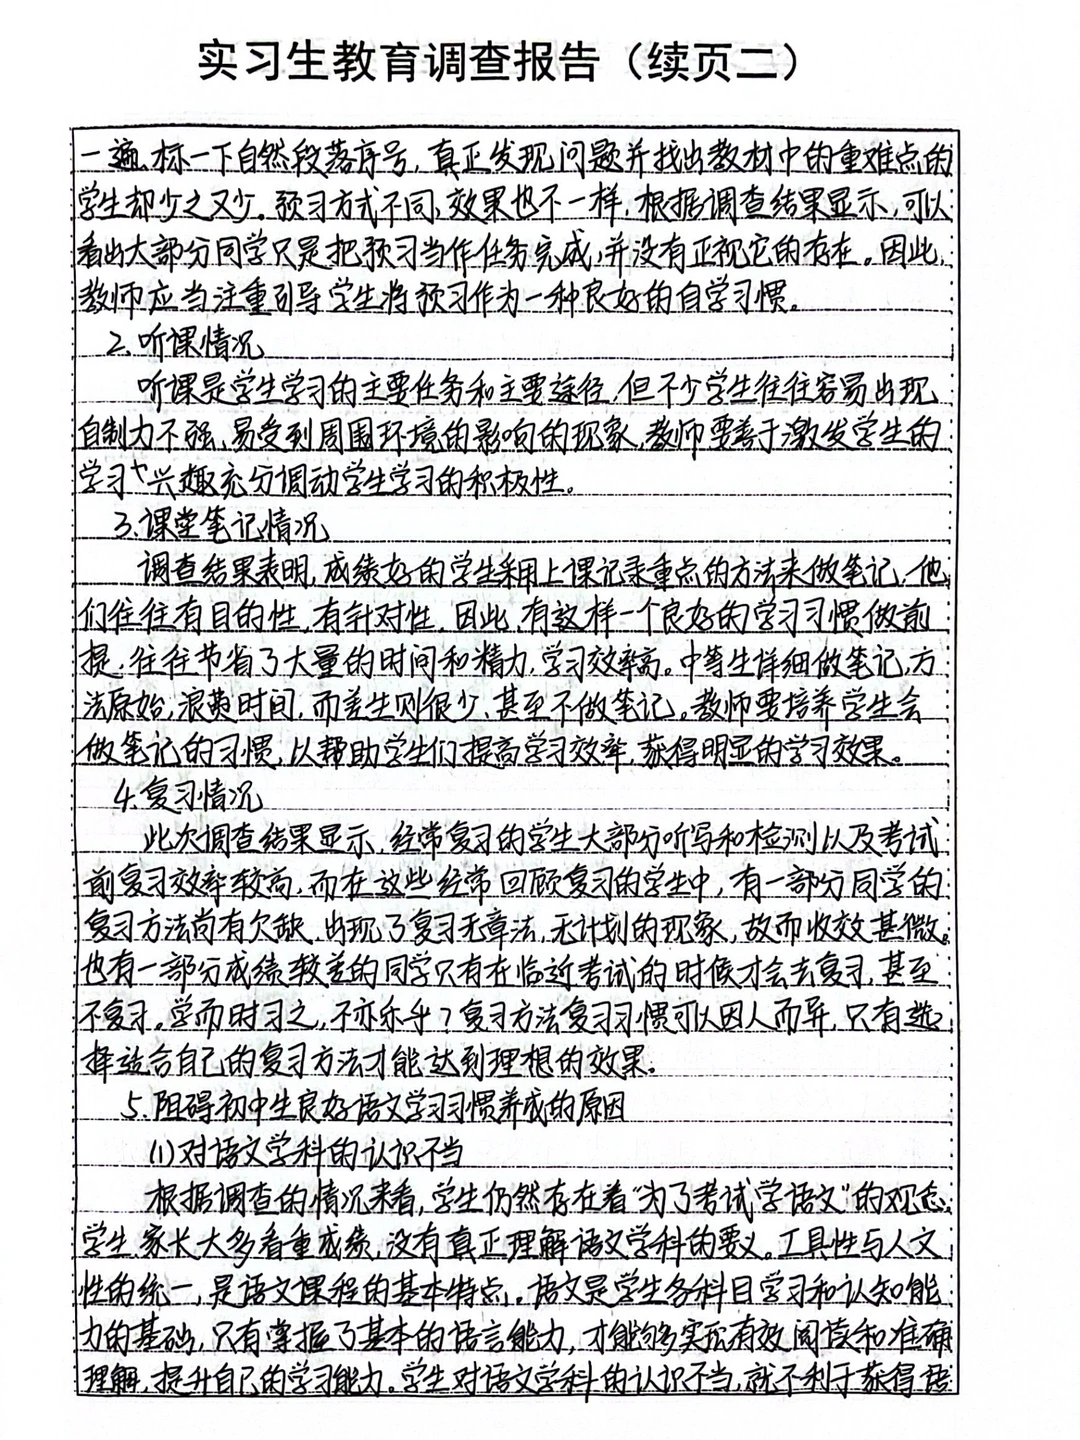 实习生教育调查报告（续页二）
一遍、标一下自然段落序号，真正发现问题并找出教材中的重难点的
学生却少之又少。预习方式不同，效果也不一样，根据调查结果显示，可以
看出大部分同学只是把预习当作任务完成，并没有正视它的存在。因此，
教师应当注重引导学生将预习作为一种良好的自学习惯。
2.听课情况
听课是学生学习的主要任务和主要途径，但不少学生往往容易出现
自制力不强、易受到周围环境的影响的现象，教师要善于激发学生的
学习兴趣充分调动学生学习的积极性。
3.课堂笔记情况
调查结果表明，成绩好的学生采用上课记录重点的方法来做笔记，他
们往往有目的性，有针对性，因此，有这样一个良好的学习习惯做前
提，往往节省了大量的时间和精力，学习效率高。中等生详细做笔记，方
法原始，浪费时间，而差生则很少、甚至不做笔记。教师要培养学生会
做笔记的习惯，以帮助学生们提高学习效率，获得明显的学习效果。
4.复习情况
此次调查结果显示，经常复习的学生大部分听写和检测以及考试
前复习效率较高，而在这些经常回顾复习的学生中，有一部分同学的
复习方法尚有欠缺，出现了复习无章法，无计划的现象，故而收效甚微。
也有一部分成绩较差的同学只有在临近考试的时候才会去复习，甚至
不复习。学而时习之，不亦亦乎？复习方法复习习惯可以因人而异，只有选
择适合自己的复习方法才能达到理想的效果。
5.阻碍初中生良好语文学习习惯养成的原因
(1)对语文学科的认识不当
根据调查的情况来看，学生仍然存在着“为了考试学语文”的观念，
学生、家长大多看重成绩，没有真正理解语文学科的要义。工具性与人文
性的统一，是语文课程的基本特点。语文是学生各科目学习和认知能
力的基础，只有掌握了基本的语言能力，才能够实现有效阅读和准确
理解，提升自己的学习能力。学生对语文学科的认识不当，就不利于获得语